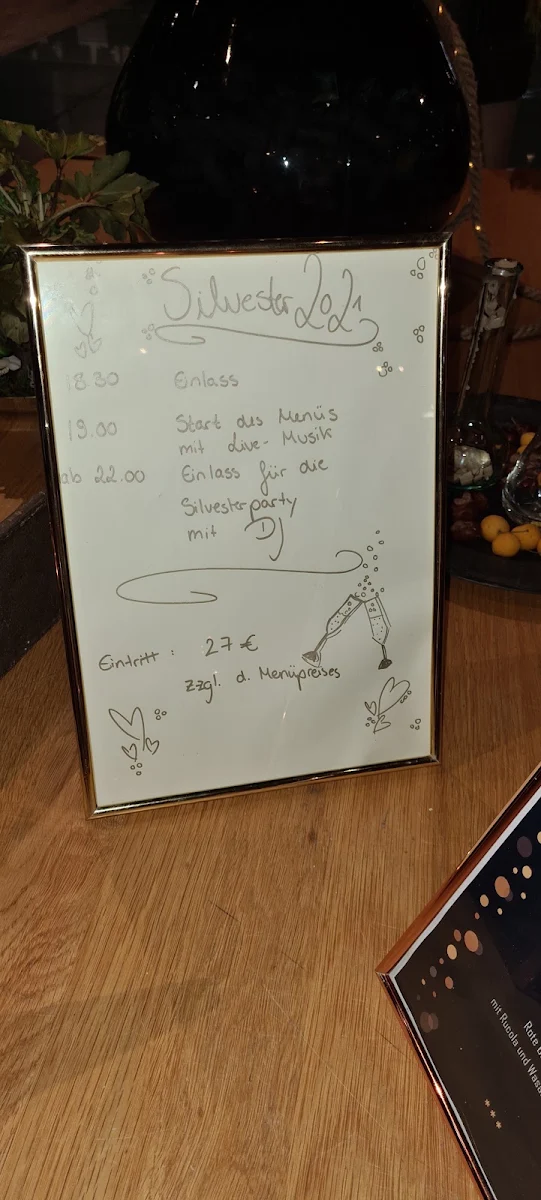 Silvester 2021
18.30 Einlass
19.00 Start des Menüs
mit Live-Musik
ab 22.00 Einlass für die
Silvesterparty
mit DJ
Eintritt: 27 €
zzgl. d. Menüpreises
Rote
mit Rucola und
***